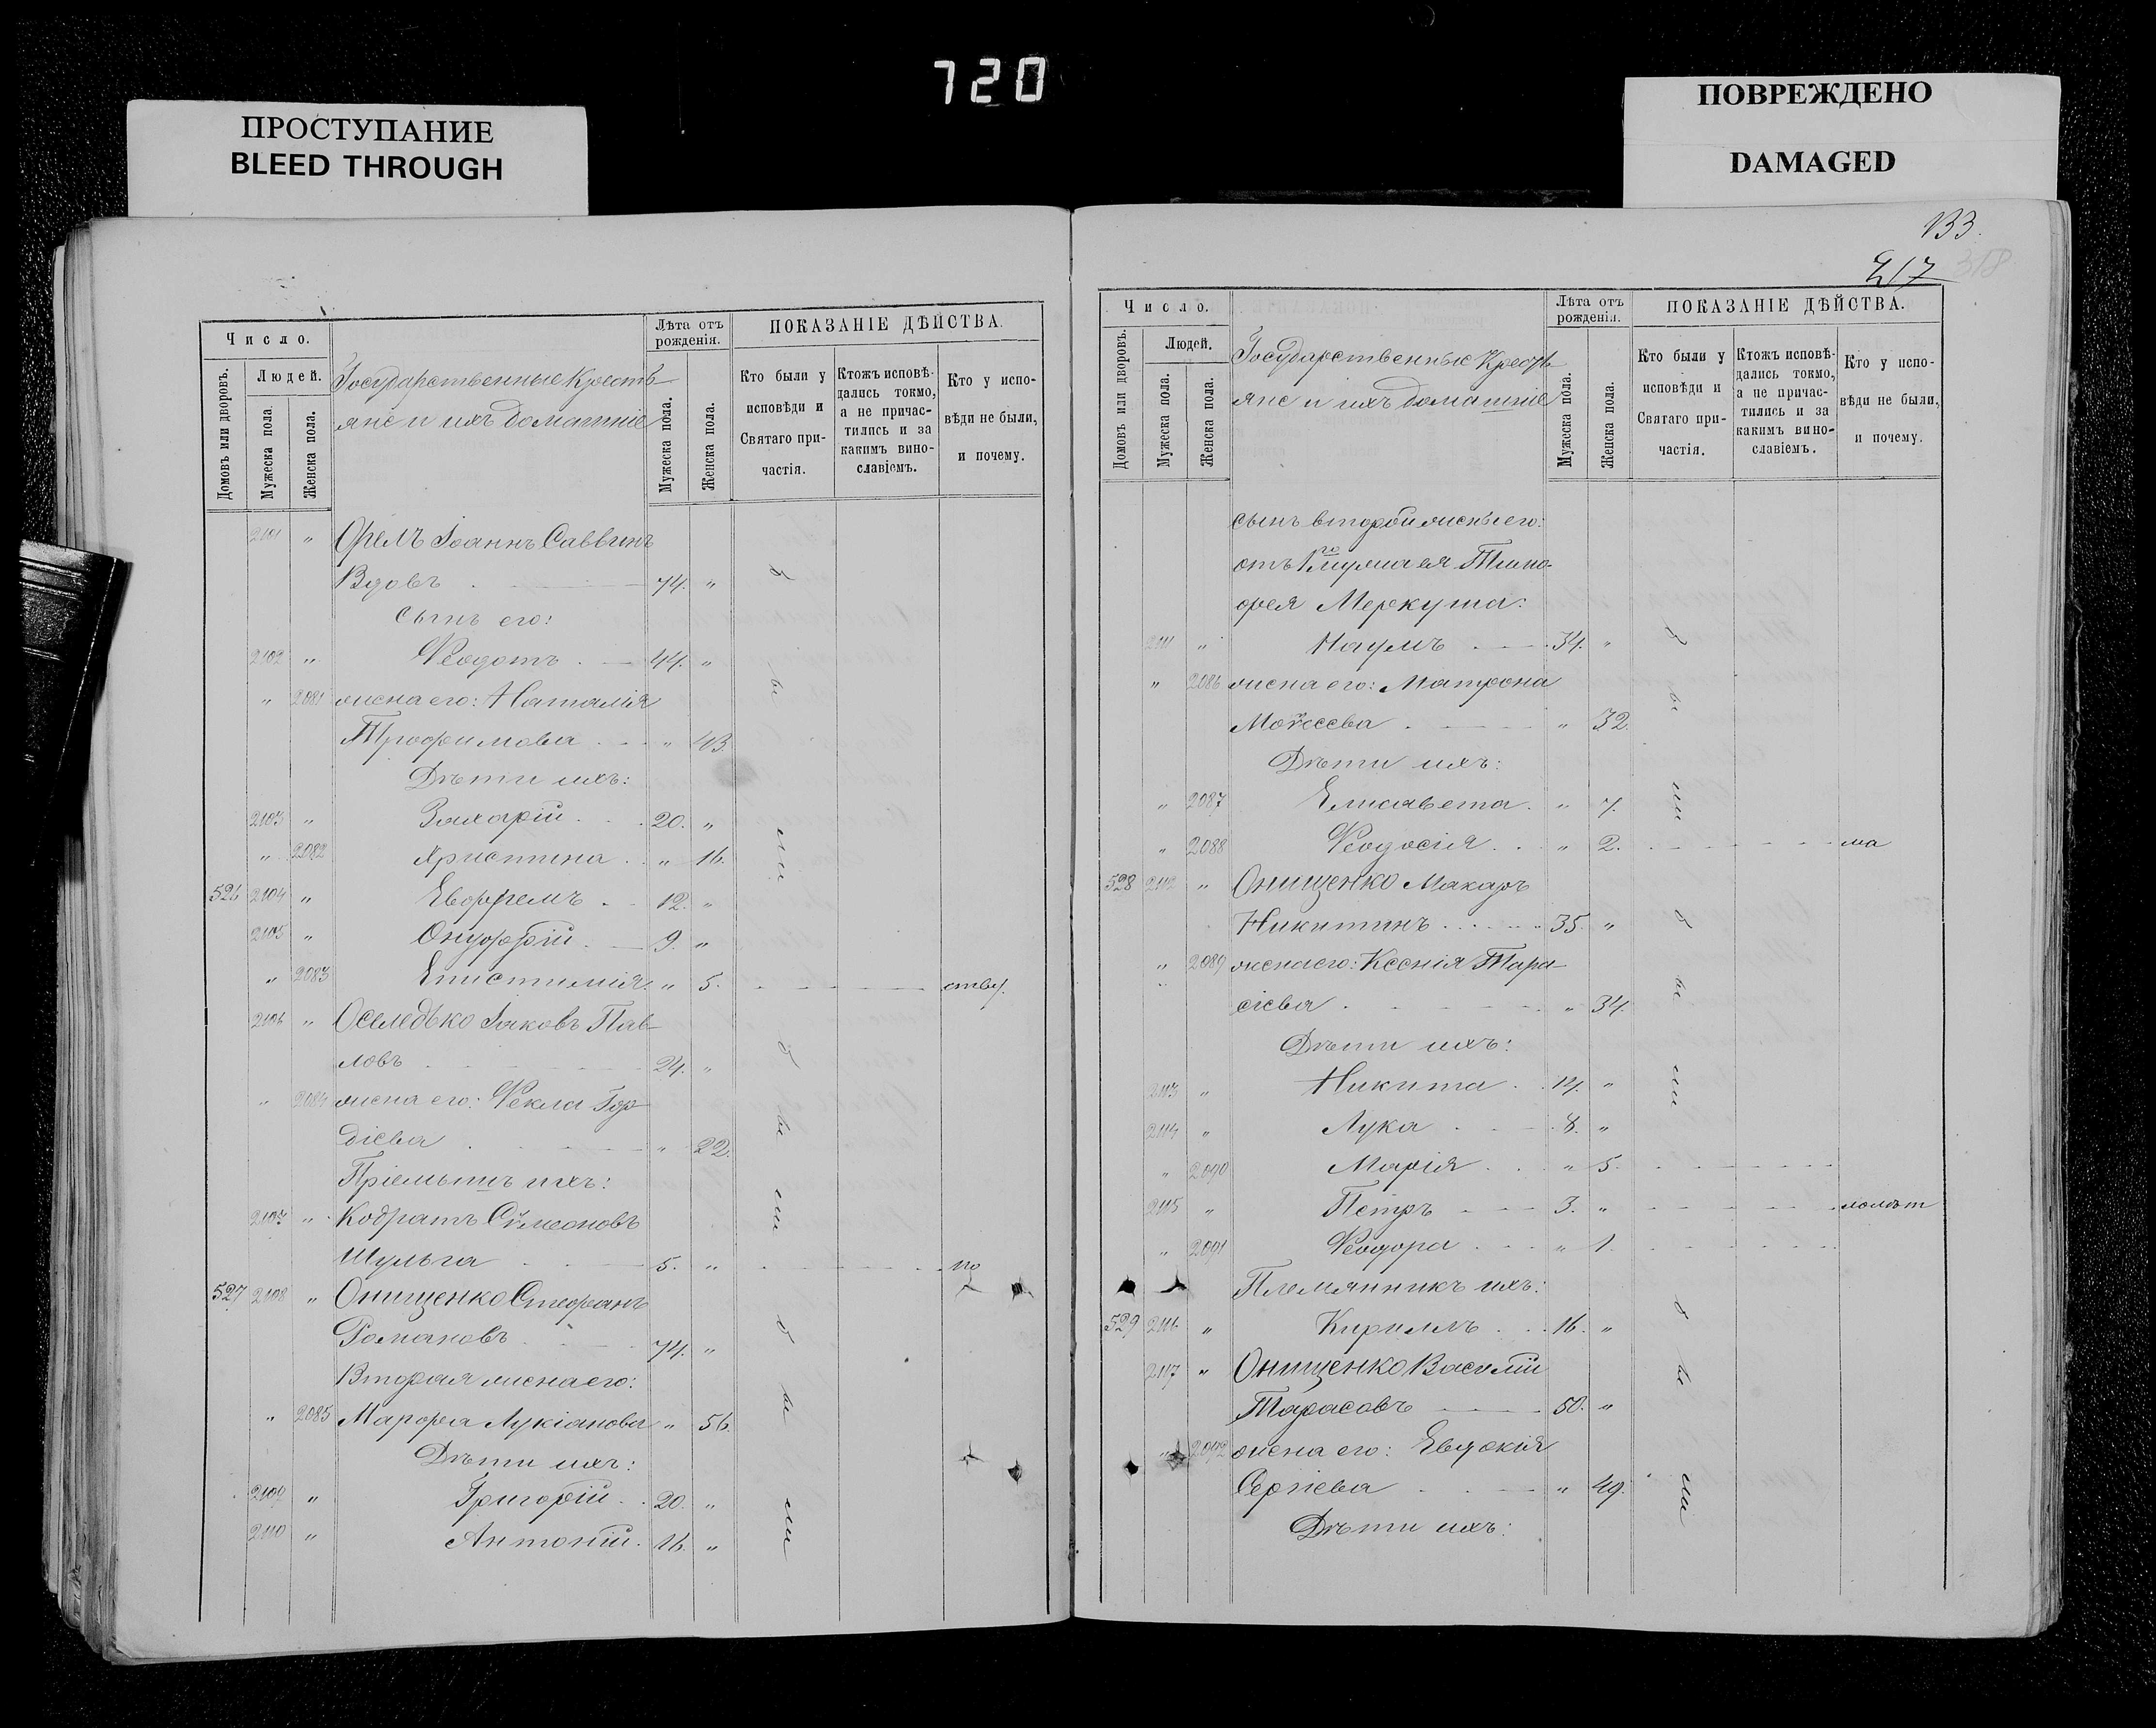 720
ПРОСТУПАНИЕ
BLEED THROUGH
ПОВРЕЖДЕНО
DAMAGED
Число.
Людей.
Домовъ или дворовъ.
Мужеска пола.
Женска пола.
Государственные Кресть-
яне и ихъ домашніе
Лѣта отъ рожденія.
Мужеска пола.
Женска пола.
ПОКАЗАНІЕ ДѢЙСТВА.
Кто были у исповѣди и Святаго причастія.
Ктожъ исповѣдались токмо, а не причастились и за какимъ винославіемъ.
Кто у исповѣди не были, и почему.
2101 " Орелъ Іоаннъ Саввинъ
Вдовъ 74. "
сынъ его:
2102 " Ѳеодотъ 44. "
" 2081 жена его: Наталія
Трофимова " 43.
Дѣти ихъ:
2103 " Захарій 20. "
" 2082 Христина " 16.
526 2104 " Евфремъ 12. "
2105 " Онуфрій 9. "
" 2083 Епистимія " 5.
2106 " Оселедько Іаковъ Пав-
ловъ 24. "
" 2084 жена его: Ѳекла Гор-
діева " 22.
Пріемышъ ихъ:
2107 " Кодратъ Сѵмеоновъ
Шульга 5. " по
527 2108 " Онищенко Стефанъ
Романовъ 74. "
Вторая жена его:
" 2085 Марфа Лукіанова " 56.
Дѣти ихъ:
2109 " Григорій 20. "
2110 " Антоній 16. "
бы
ли
133.
217
318
Число.
Людей.
Домовъ или дворовъ.
Мужеска пола.
Женска пола.
Государственные Кресть-
яне и ихъ домашніе
Лѣта отъ рожденія.
Мужеска пола.
Женска пола.
ПОКАЗАНІЕ ДѢЙСТВА.
Кто были у исповѣди и Святаго причастія.
Ктожъ исповѣдались токмо, а не причастились и за какимъ винославіемъ.
Кто у исповѣди не были, и почему.
сынъ второй жены его:
отъ 1го мужа ея Тимо-
фея Меркуша:
2111 " Наумъ 34. "
" 2086 жена его: Матрона
Моѵсеева " 32.
Дѣти ихъ:
" 2087 Елисавета " 7.
" 2088 Ѳеодосія " 2. ма
528 2112 " Онищенко Макаръ
Никитинъ 35. "
" 2089 жена его: Ксенія Тара-
сіева " 34.
Дѣти ихъ:
2113 " Никита 14. "
2114 " Лука 8. "
" 2090 Марія " 5.
2115 " Петръ 3. " лолѣт
" 2091 Ѳеодора " 1.
Племянникъ ихъ:
529 2116 " Кириллъ 16. "
2117 " Онищенко Василій
Тарасовъ 50. "
" 2092 жена его: Евдокія
Сергіева " 49.
Дѣти ихъ:
бы
ли